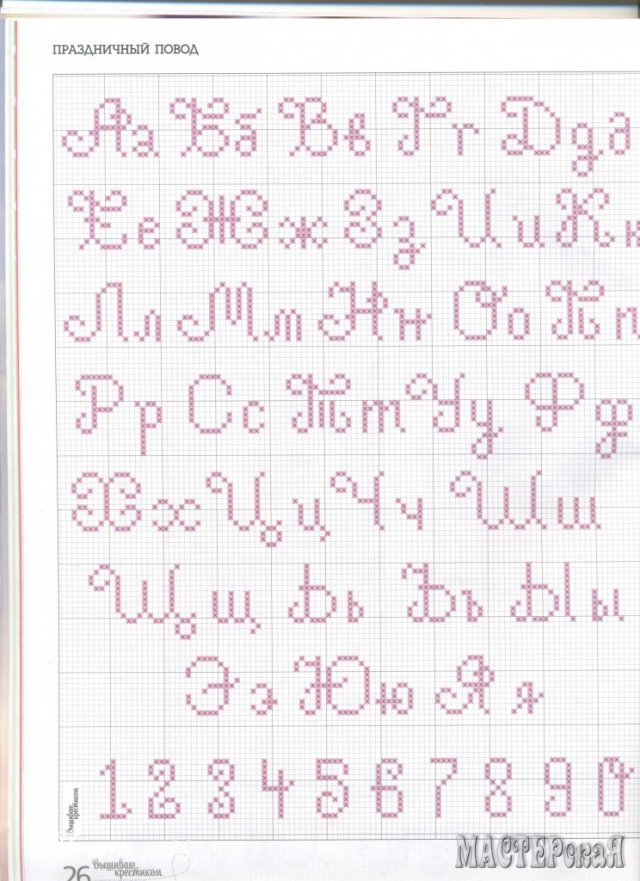 ПРАЗДНИЧНЫЙ ПОВОД
Аа Бб Вв Гг Дд д
Ее Жж Зз Ии Кк
Лл Мм Нн Оо Пп
Рр Сс Тт Уу Фф
Хх Цц Чч Шш
Щщ Ьь Ъъ Ыы
Ээ Юю Яя
1 2 3 4 5 6 7 8 9 0
Вышиваю
крестиком
26 Вышиваю
крестиком
МАСТЕРскаЯ